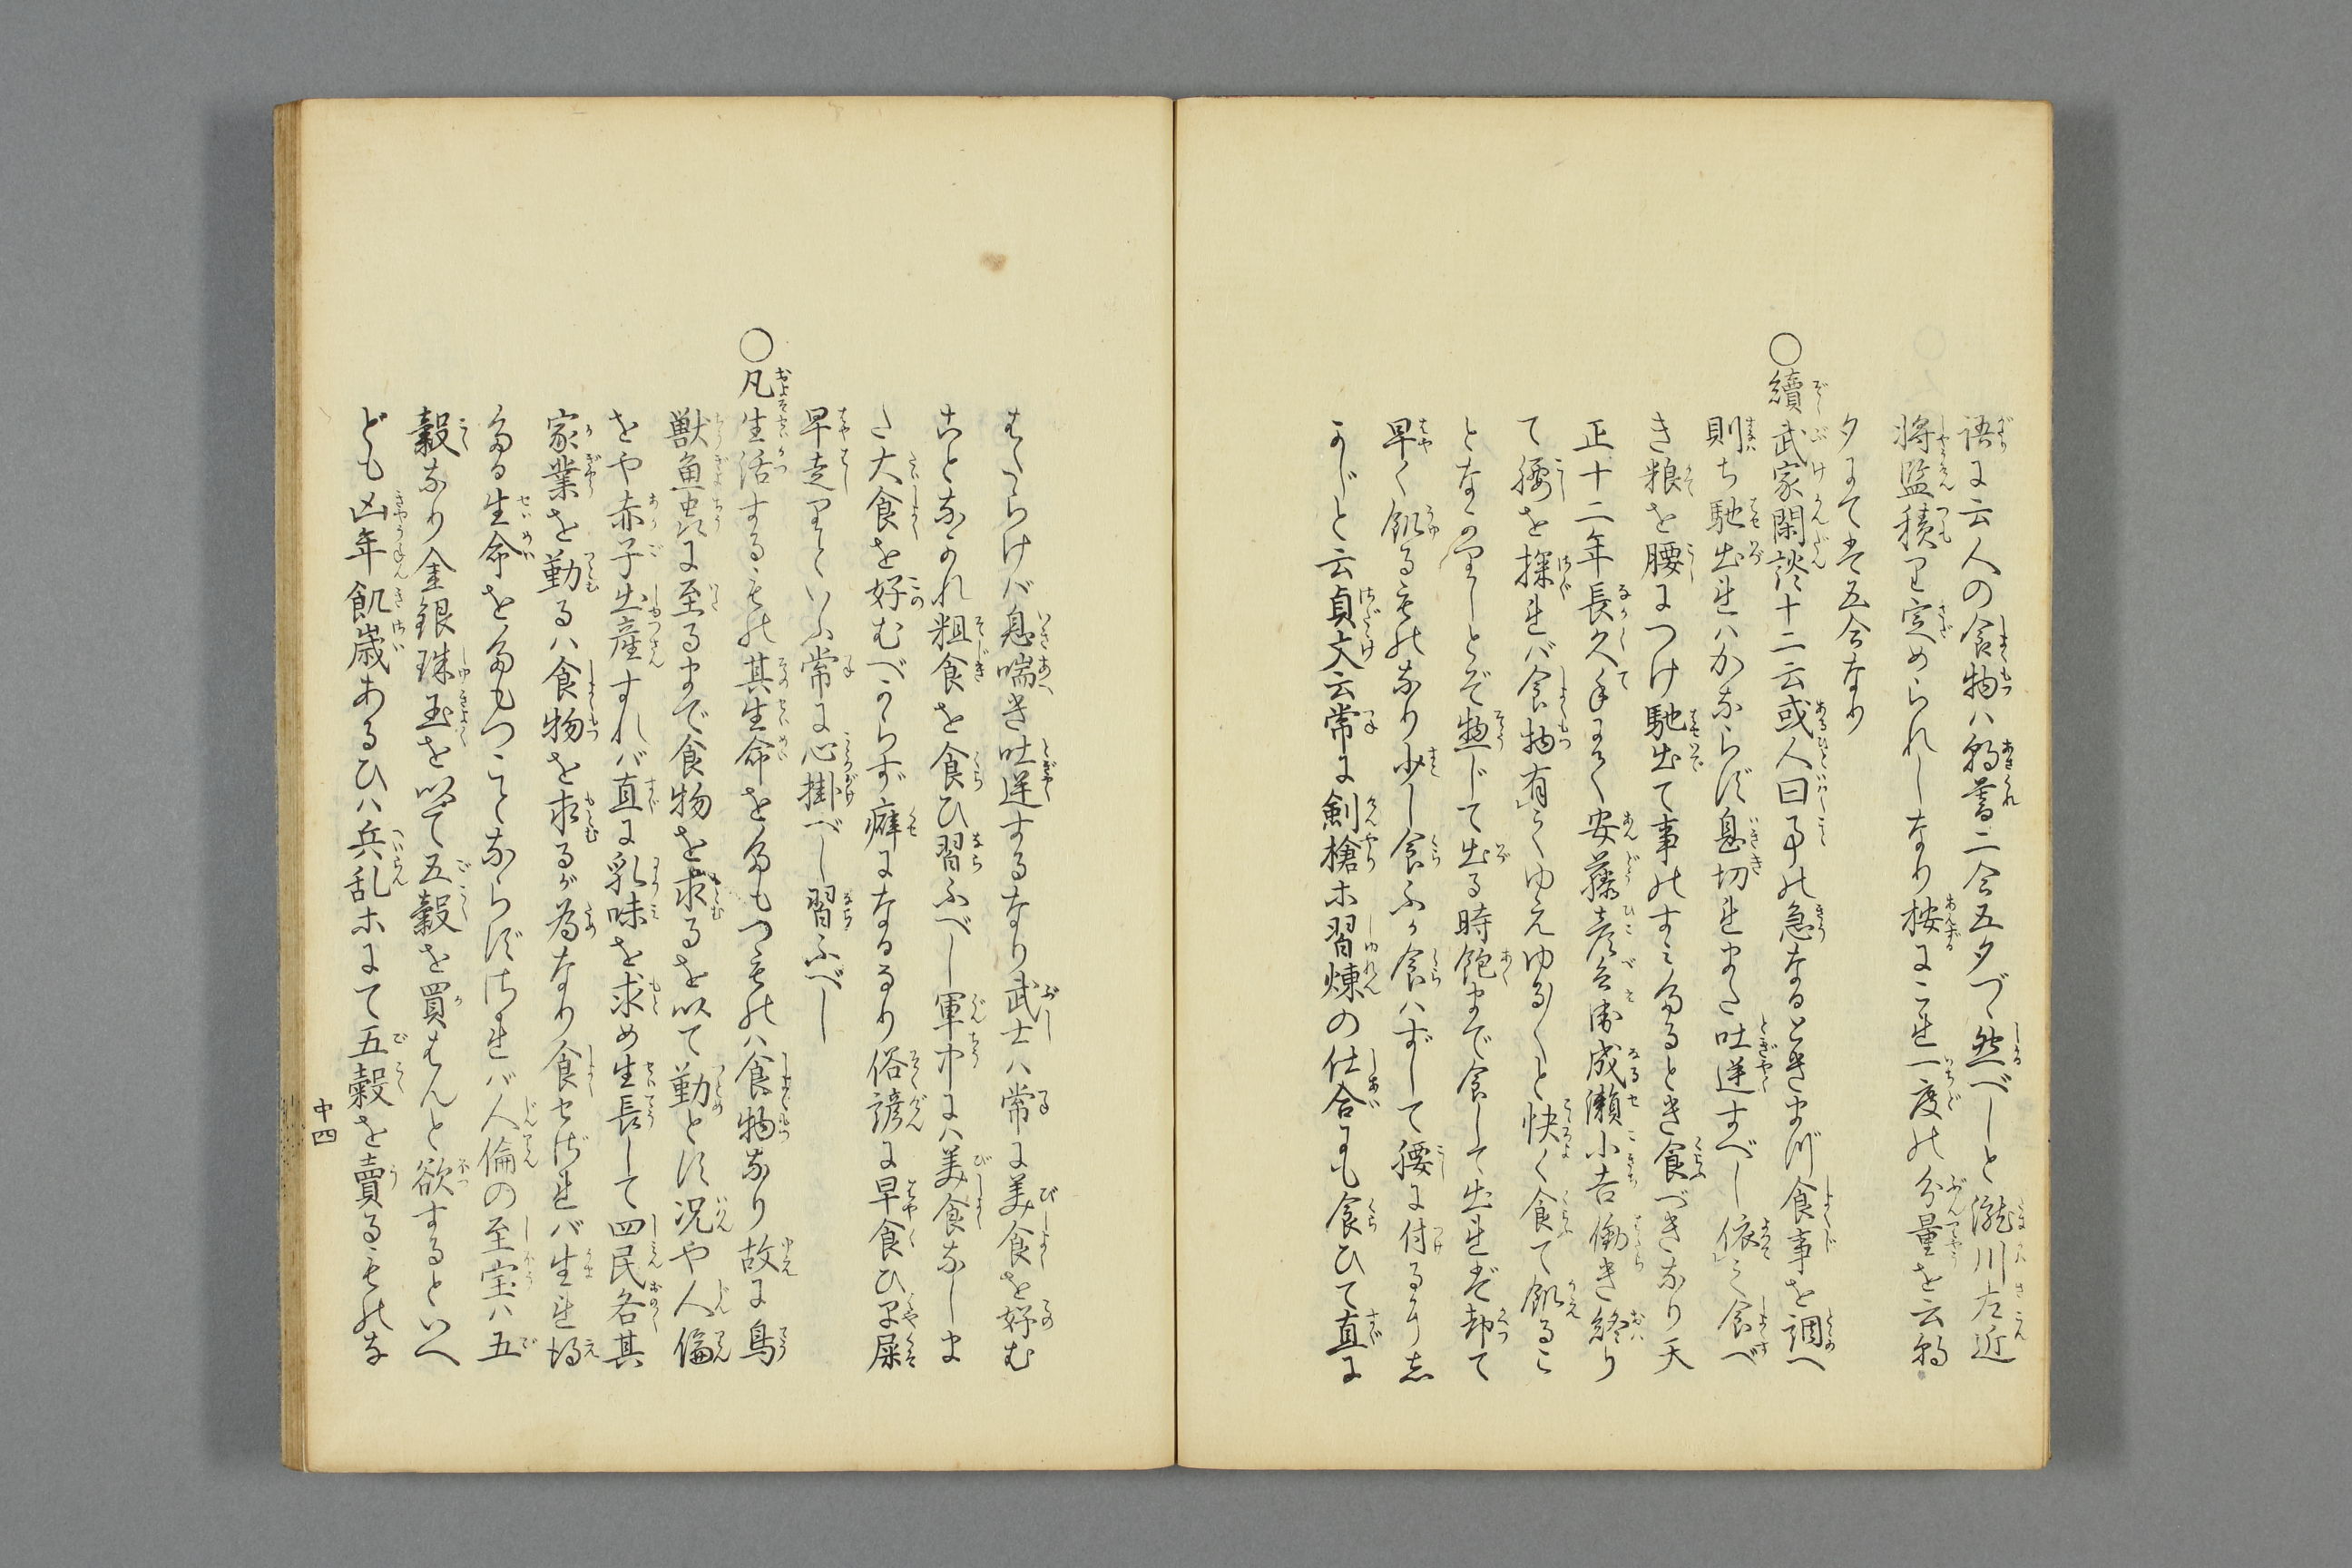 語に云人の食物ハ朝暮二合五夕づゝ然べしと瀧川左近
将監積り定められしなり按にこれ一度の分量を云朝
夕にてハ五合なり
○續武家閑談十二云或人曰事の急なるときまづ食事を調へ
則ち馳出れハかならず息切れまた吐逆すべし依て食べ
き粮を腰につけ馳出て事のすミたるとき食べきなり天
正十二年長久手にて安藤彦兵衛成瀬小吉働き終り
て腰を探れバ食物有しゆえゆる〳〵と快く食て飢るこ
となかりしとぞ惣じて出る時飽まで食して出れば却て
早く飢るものなり少し食ふか食ハずして腰に付るにし
かじと云貞丈云常に剣槍ホ習煉の仕合にも食ひて直に
はたらけバ息喘き吐逆するなり武士ハ常に美食を好む
ことなかれ粗食を食ひ習ふべし軍中にハ美食なしま
た大食を好むべからず癖になるなり俗諺に早食ひ早屎
早走りといふ常に心掛べし習ふべし
○凡生活するもの其生命をたもつものハ食物なり故に鳥
獣魚虫に至るまで食物を求るを以て勤とす况や人倫
をや赤子出産すれバ直に乳味を求め生長して四民各其
家業を勤るハ食物を求るが為なり食せざれバ生れ得
たる生命をたもつことならずされバ人倫の至宝ハ五
穀なり金銀珠玉を以て五穀を買はんと欲するといへ
ども凶年飢歳あるひハ兵乱ホにて五穀を賣るものな
中四